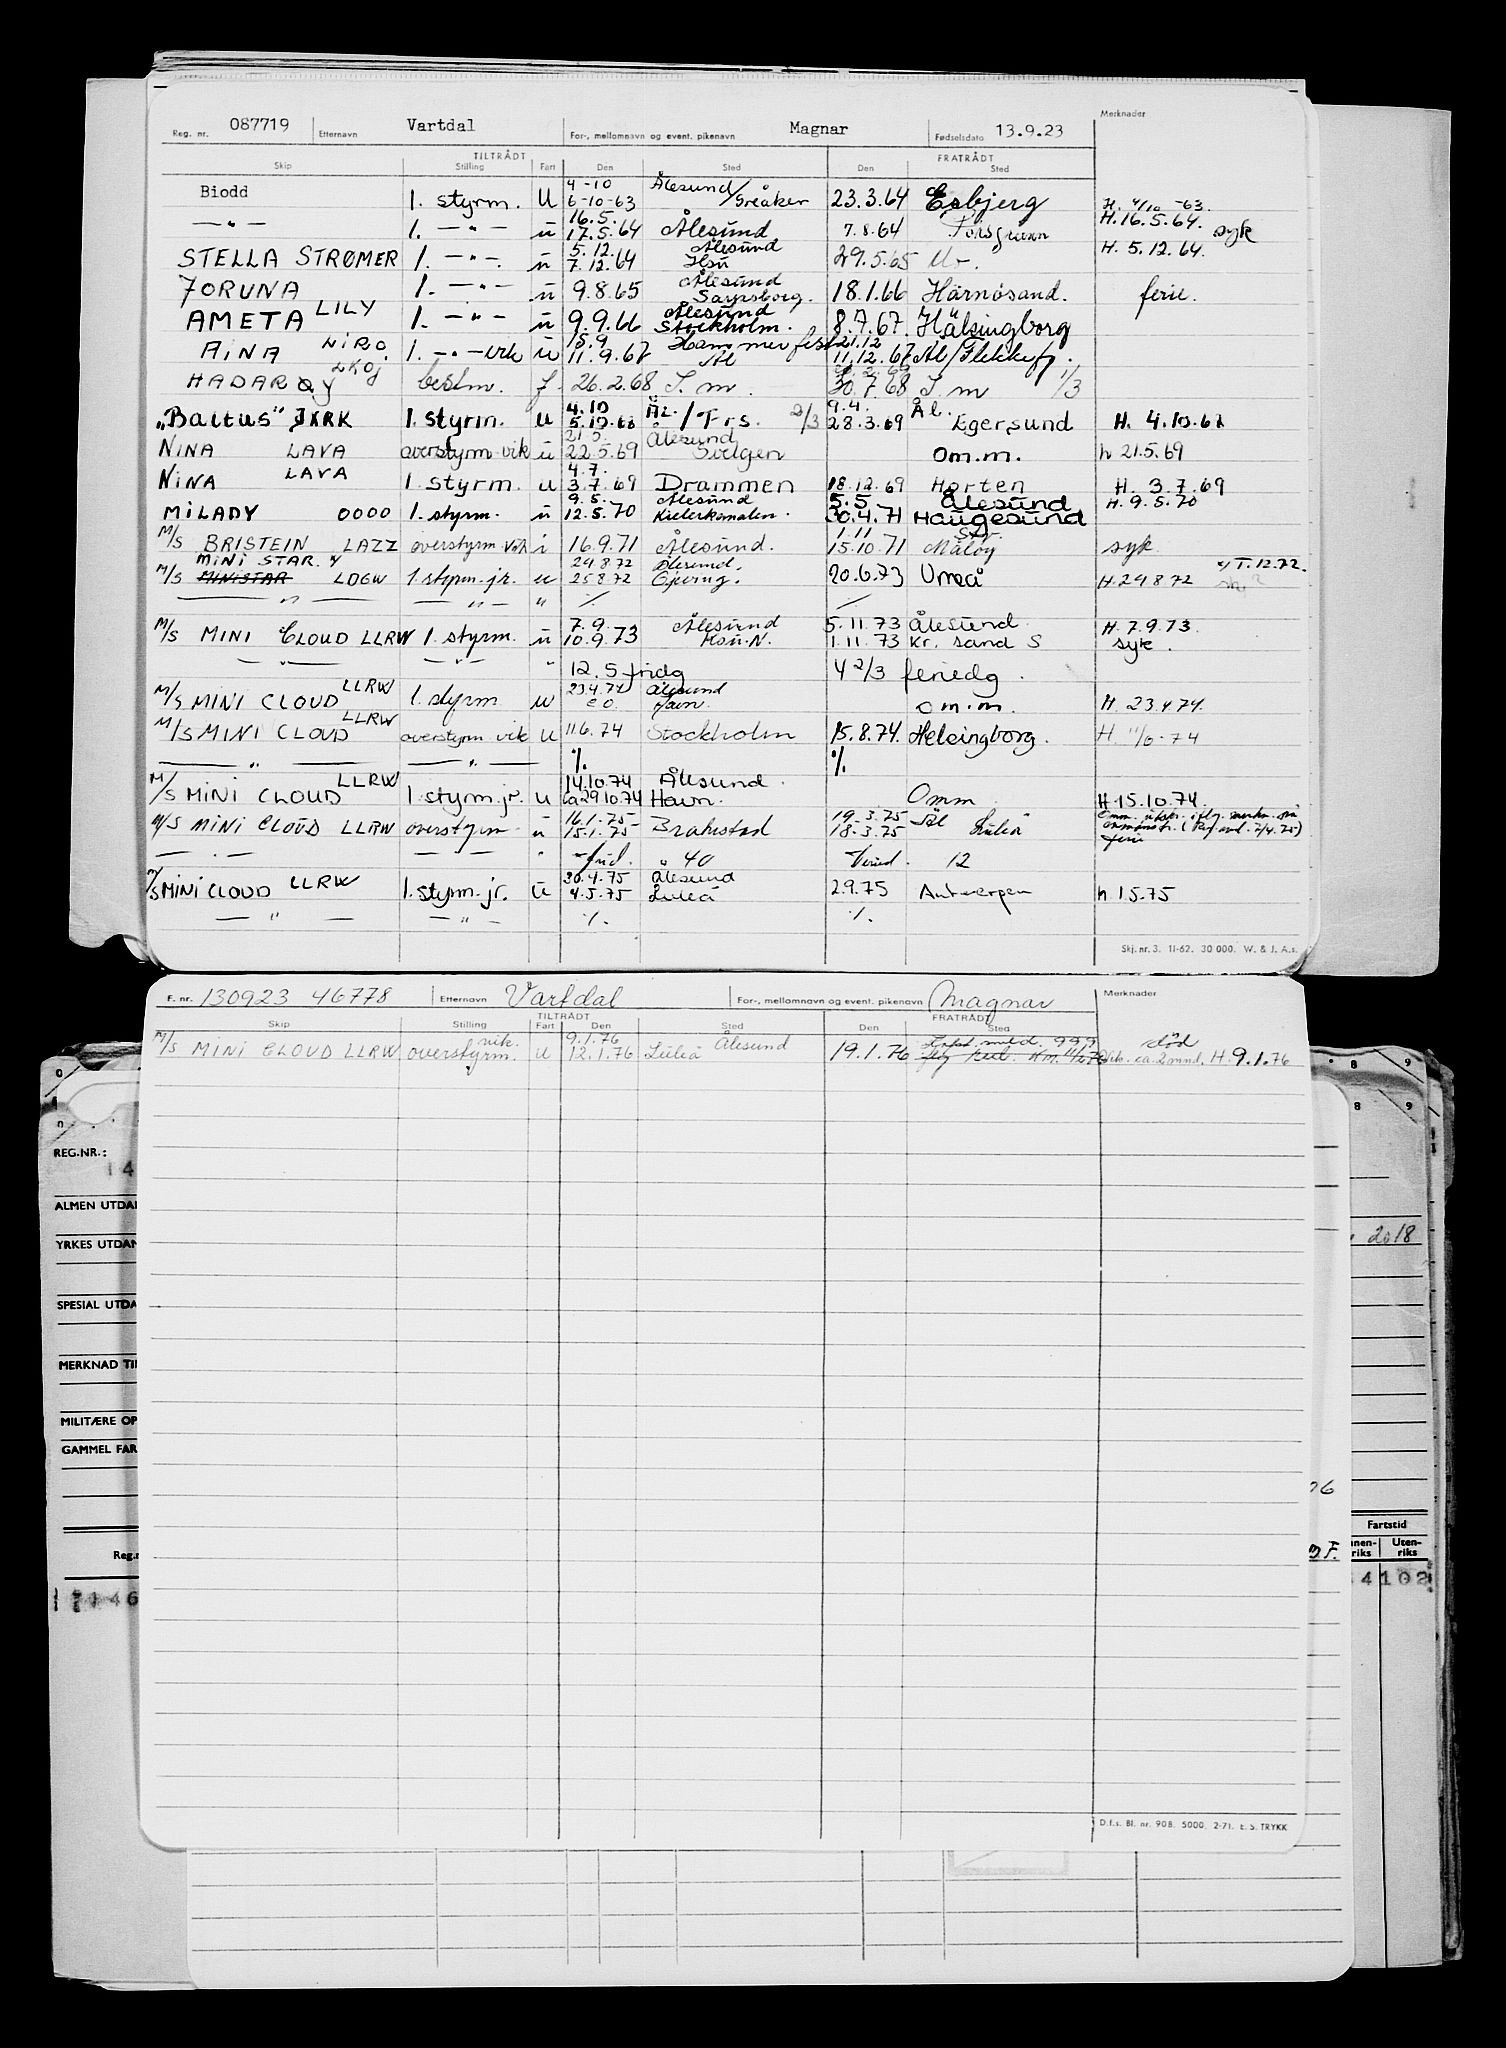 Merknader
Reg. nr. 087719 Etternavn Vartdal For-, mellomnavn og event. pikenavn Magnar Fødselsdato 13.9.23
TILTRÅDT FRATRÅDT
Skip Stilling Fart Den Sted Den Sted
4-10 Ålesund
Biodd 1. styrm. U 6-10-63 /Greåker 23.3.64 Esbjerg H. 4/10-63.
16.5. H.16.5.64.
— " — 1. — " — u 17.5.64 Ålesund 7.8.64 Porsgrunn syk
5.12. Ålesund H. 5.12.64.
STELLA STRØMER 1. — " —. u 7.12.64 29.5.65
Ålesund
JORUNA 1. — " — u 9.8.65 Sarpsborg. 18.1.66 Härnösand. ferie.
Ålesund
AMETA LILY 1. — " — u 9.9.66 Stockholm. 8.7.67. Hälsingborg
15.9 Hammerfest 21.12
AINA LIRO 1. — " — vik u 11.9.67 Ål 11.12.67 Ål/Flekkefj.
HADARØY LKOJ bestm. f. 26.2.68 S.m. 30.7.68 S.m 1/3
4.10 ÅL. 9.4. Ål.
"Baltus" JXRK 1. styrm. u 5.10.68 /Frs. 2/3 28.3.69 Egersund H. 4.10.68
21.5. Ålesund
NINA LAVA overstyrm vik u 22.5.69 Svelgen om.m. h 21.5.69
4.7.
NINA LAVA 1 styrm. u 3.7.69 Drammen 18.12.69 Horten H. 3.7.69
9.5. Ålesund 5.5 Ålesund H. 9.5.70
MILADY OOOO 1. styrm. u 12.5.70 Kielerkanalen. 30.4.71 Haugesund
1.11
M/S BRISTEIN LAZZ overstyrm. vik i 16.9.71 Ålesund. 15.10.71 Måløy syk
MINI STAR. 24.8.72 Ålesund. T.12.72.
M/S MINISTAR LDGW 1 styrm. jr. u 25.8.72 20.6.73 Umeå H.24 8 72
— " — — " — " % %
7.9. Ålesund 5.11.73 Ålesund. H. 7.9.73.
M/S MINI CLOUD LLRW 1. styrm. u 10.9.73 1.11.73 Kr. sand S syk.
— " — — " — " 12.5 fridg 4 2/3 feriedg.
23.4.74 Ålesund
M/S MINI CLOUD LLRW 1. styrm u e.o. Havn. om.m. H. 23.4.74.
M/S MINI CLOUD LLRW overstyrm vik u 11.6.74 Stockholm 15.8.74. Helsingborg. H. 11/6-74
— " — — " — %. %.
14.10.74 Ålesund.
M/S MINI CLOUD LLRW 1. styrm. jr. u ca 29 10.74 Havn. Omm H 15.10.74.
16.1.75 19.3.75 Ål
M/S MINI CLOUD LLRW overstyrm u 15.1.75 Brahestad 18-3.75 Luleå ferie
— " — — — " frid. 40 feried. 12
30.4.75 Ålesund
M/S MINI CLOUD LLRW 1. styrm. jr. u 4.5.75 Luleå 2.9.75 Antwerpen h 1.5.75
— " — — " — %. %.
Skj. nr. 3. 11-62. 30 000. W. & J. A.s.
F. nr. 130923 46778 Etternavn Vartdal For-, mellomnavn og event. pikenavn Magnar Merknader
TILTRÅDT FRATRÅDT
Skip Stilling Fart Den Sted Den Sted
vik. 9.1.76 Ålesund død
M/S MINI CLOUD LLRW overstyrm. u 12.1.76 Luleå 19.1.76 ca. 2 mnd. H. 9.1.76
8 9
8 9
REG.NR.:
14
ALMEN UTDA
YRKES UTDAN
2018
SPESIAL UTDA
MERKNAD TI
MILITÆRE OP
GAMMEL FAR
Fartstid
Reg.n
Uten-
riks
4102
D.f.s. Bl. nr. 908. 5000. 2-71. E. S. TRYKK